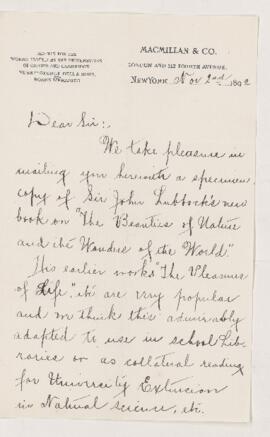 MACMILLAN & CO.
LONDON AND 112 FOURTH AVENUE,
NEW YORK Nov 2nd 1892
Dear Sir:
We take pleasure in
mailing you herewith a specimen
copy of Sir John Lubbock's new
book on "The Beauties of Nature
and the Wonders of the World."
His earlier works "The Pleasures
of Life", etc are very popular
and we think this admirably
adapted to use in school Lib-
raries or as collateral reading
for University Extension
in Natural science, etc.